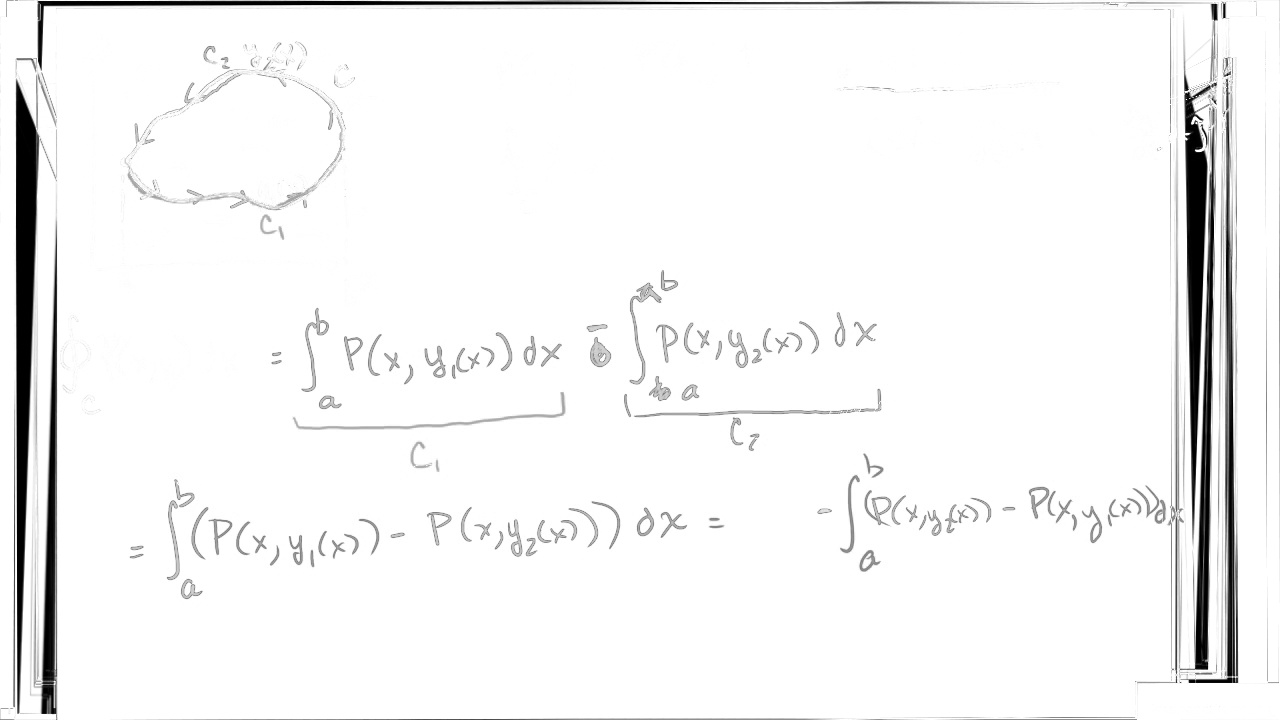 C₂ y₂(x) C
C₁
= ∫_a^b P(x, y₁(x)) dx - ∫_a^b P(x, y₂(x)) dx
C₁ C₂
= ∫_a^b (P(x, y₁(x)) - P(x, y₂(x))) dx = - ∫_a^b (P(x, y₂(x)) - P(x, y₁(x))) dx